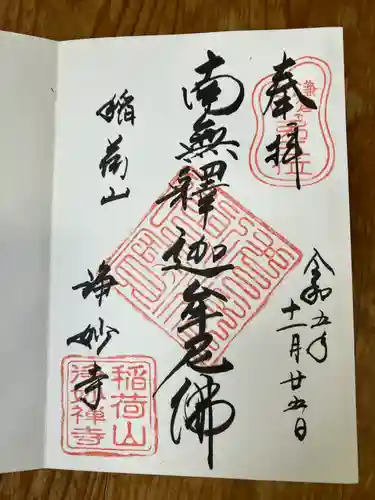 奉拝
令和五年
十一月廿五日
南無釋迦牟尼佛
稲荷山
浄妙寺
稲荷山
浄妙禅寺